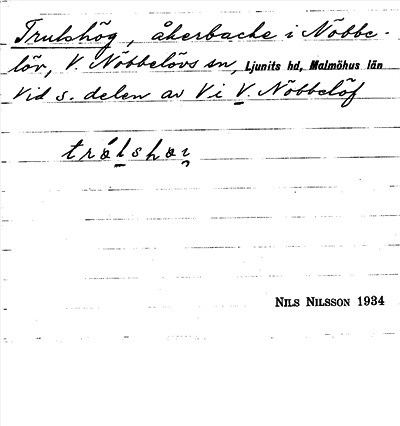 Trulshög, åkerbacke i Nöbbe-
löv, V. Nöbbelövs sn, Ljunits hd, Malmöhus län
Vid s. delen av Vi V. Nöbbelöf
NILS NILSSON 1934